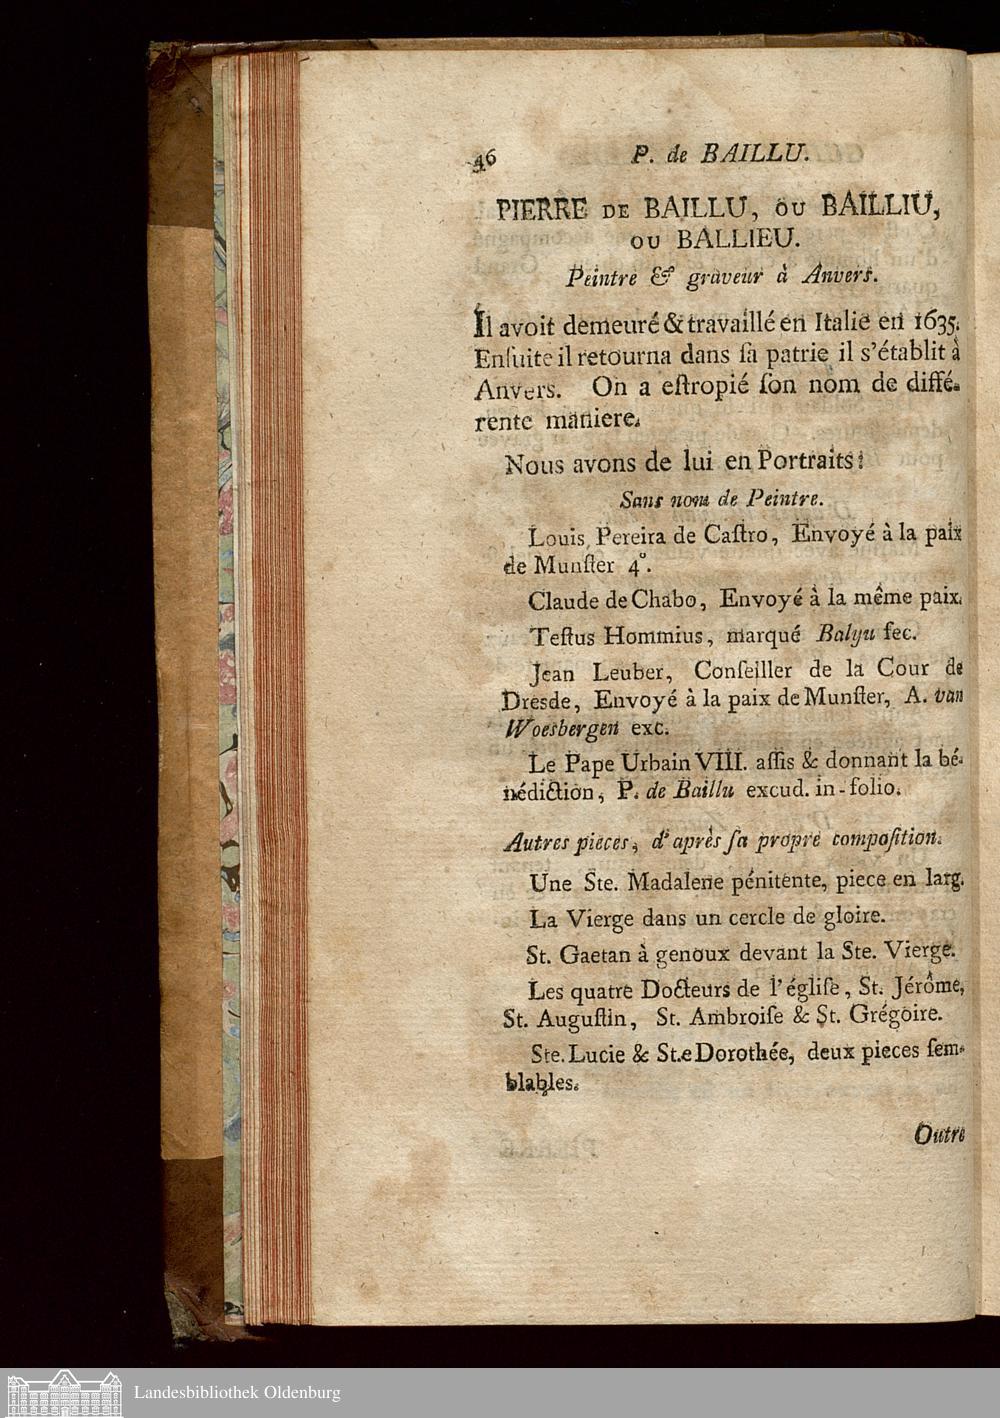 46 P. de BAILLU.
PIERRE DE BAILLU, OU BAILLIU,
OU BALLIEU.
Peintre & graveur à Anvers.
Il avoit demeuré & travaillé en Italie en 1635.
Enſuite il retourna dans ſa patrie il s'établit à
Anvers. On a eſtropié ſon nom de diffé-
rente maniere.
Nous avons de lui en Portraits:
Sans nom de Peintre.
Louis Pereira de Caſtro, Envoyé à la paix
de Munſter 4°.
Claude de Chabo, Envoyé à la même paix.
Teſtus Hommius, marqué Balyu fec.
Jean Leuber, Conſeiller de la Cour de
Dresde, Envoyé à la paix de Munſter, A. van
Woesbergen exc.
Le Pape Urbain VIII. aſſis & donnant la bé-
nédiction, P. de Baillu excud. in-folio.
Autres pieces, d'après ſa propre compoſition.
Une Ste. Madalene pénitente, piece en larg.
La Vierge dans un cercle de gloire.
St. Gaetan à genoux devant la Ste. Vierge.
Les quatre Docteurs de l'égliſe, St. Jérôme,
St. Auguſtin, St. Ambroiſe & St. Grégoire.
Ste. Lucie & St.e Dorothée, deux pieces ſem-
blables.
Outre
Landesbibliothek Oldenburg